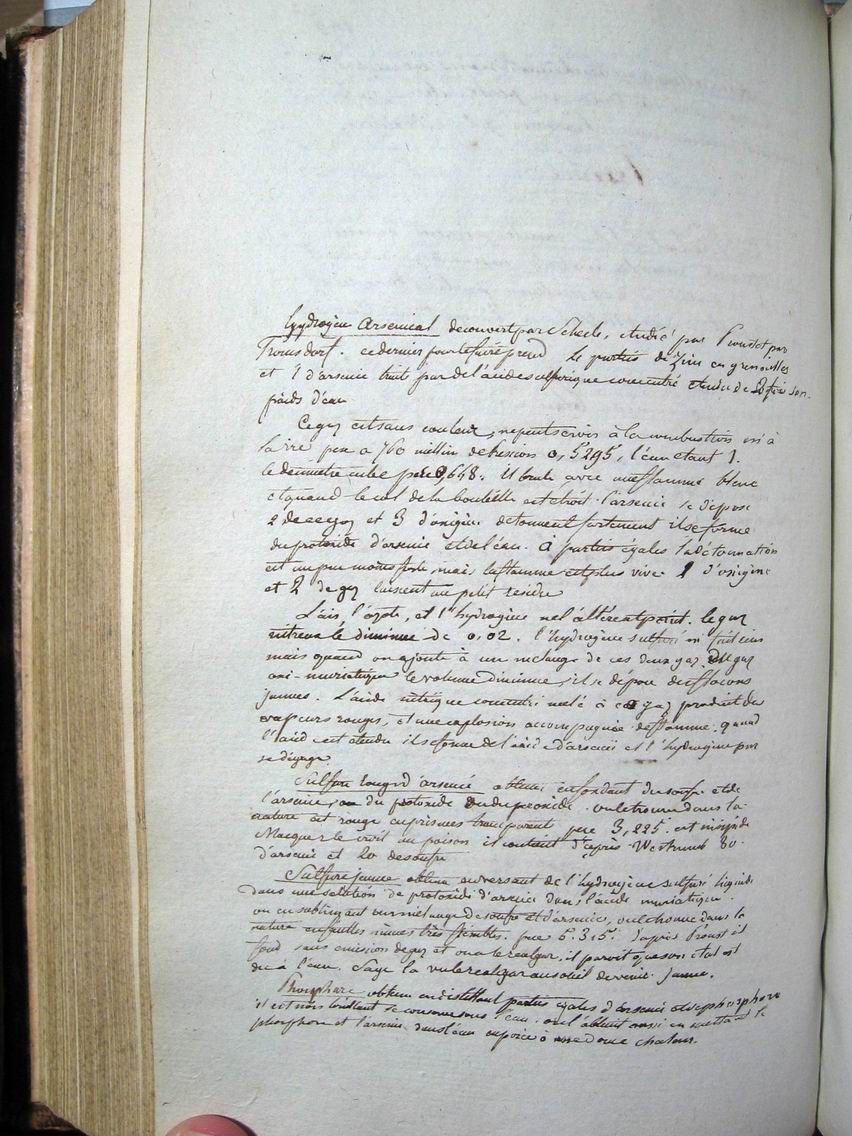 hydrogène Arsenical decouvert par Schele, etudié par Proust et par
Tromsdorf. ce dernier pour le faire prend 4 parties de Zinc en grenailles
et 1 d'arsenic traité par de l'acide sulfurique concentré etendu de 2 fois son
poids d'eau
Ce gaz est sans couleur, ne peut servir à la combustion ni à
la vie pese a 760 millim de pression 0,5295, l'eau etant 1.
le decimetre cube pese 0,648. Il brule avec une flamme blanc
et quand le col de la bouteille est etroit l'arsenic se depose
2 de ce gaz et 3 d'oxigène detonnent fortement il se forme
du protoxide d'arsenic et de l'eau. à parties égales la détonnation
est un peu moins forte, mais la flamme est plus vive. 1 d'oxigène
et 2 de gaz laissent un petit residu
L'air, l'azote, et l'hydrogène ne l'altèrent point. le gaz
nitreux le diminue de 0,02. l'hydrogène sulfuré en fait rien
mais quand on ajoute à un melange de ces deux gaz du gaz
oxi-muriatique le volume diminue, il se dépose des flocons
jaunes. L'acide nitrique concentré melé à ce gaz produit des
vapeurs rouges, et une explosion accompagnée de flamme. quand
l'acide est etendu il se forme de l'acide d'arsenic et l'hydrogène pur
se dégage.
Sulfure rouge d'arsenic obtenu en fondant du soufre et de
l'arsenic, ou du protoxide ou du peroxide. on le trouve dans la
nature est rouge en prismes transparent, pese 3,225. est insipide
Macquer le croit un poison il contient d'après Westrumb 80
d'arsenic et 20 de soufre
Sulfure jaune obtenu en versant de l'hydrogène sulfuré liquide
dans une solution de protoxide d'arsenic dans l'acide muriatique.
ou en sublimant un mélange de soufre et d'arsenic, on le trouve dans la
nature en feuilles minces très flexibles. pese 5.315. d'après Proust il
fond sans emission de gaz et on a le realgar, il paroit que son etat est
du à l'eau. Sage l'a vu le realgar au soleil devenir jaune.
Phosphure obtenu en distillant parties égales d'arsenic et de phosphore
il est noir brillant se conserve sous l'eau. on l'obtient aussi en mettant le
phosphore et l'arsenic dans l'eau exposée à une douce chaleur.